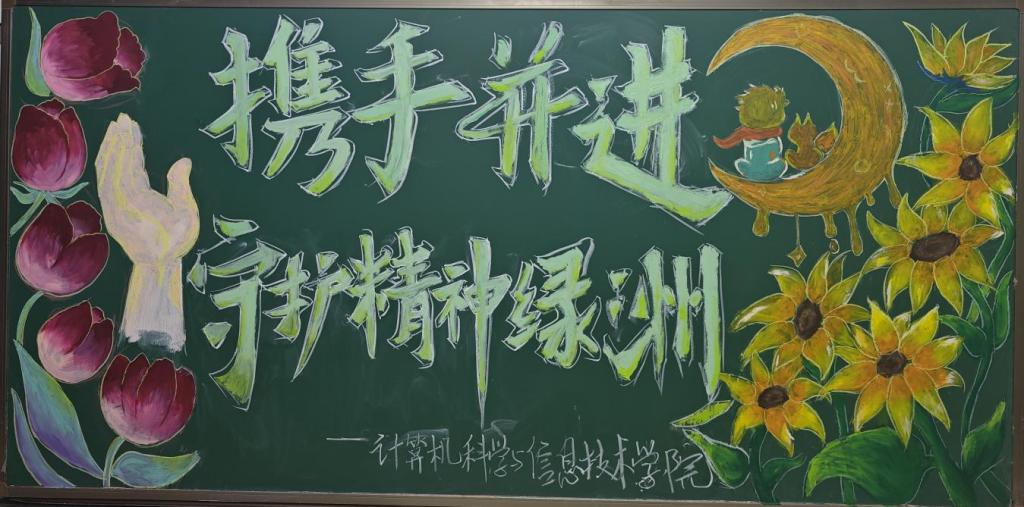 携手并进
守护精神绿洲
——计算机科学与信息技术学院